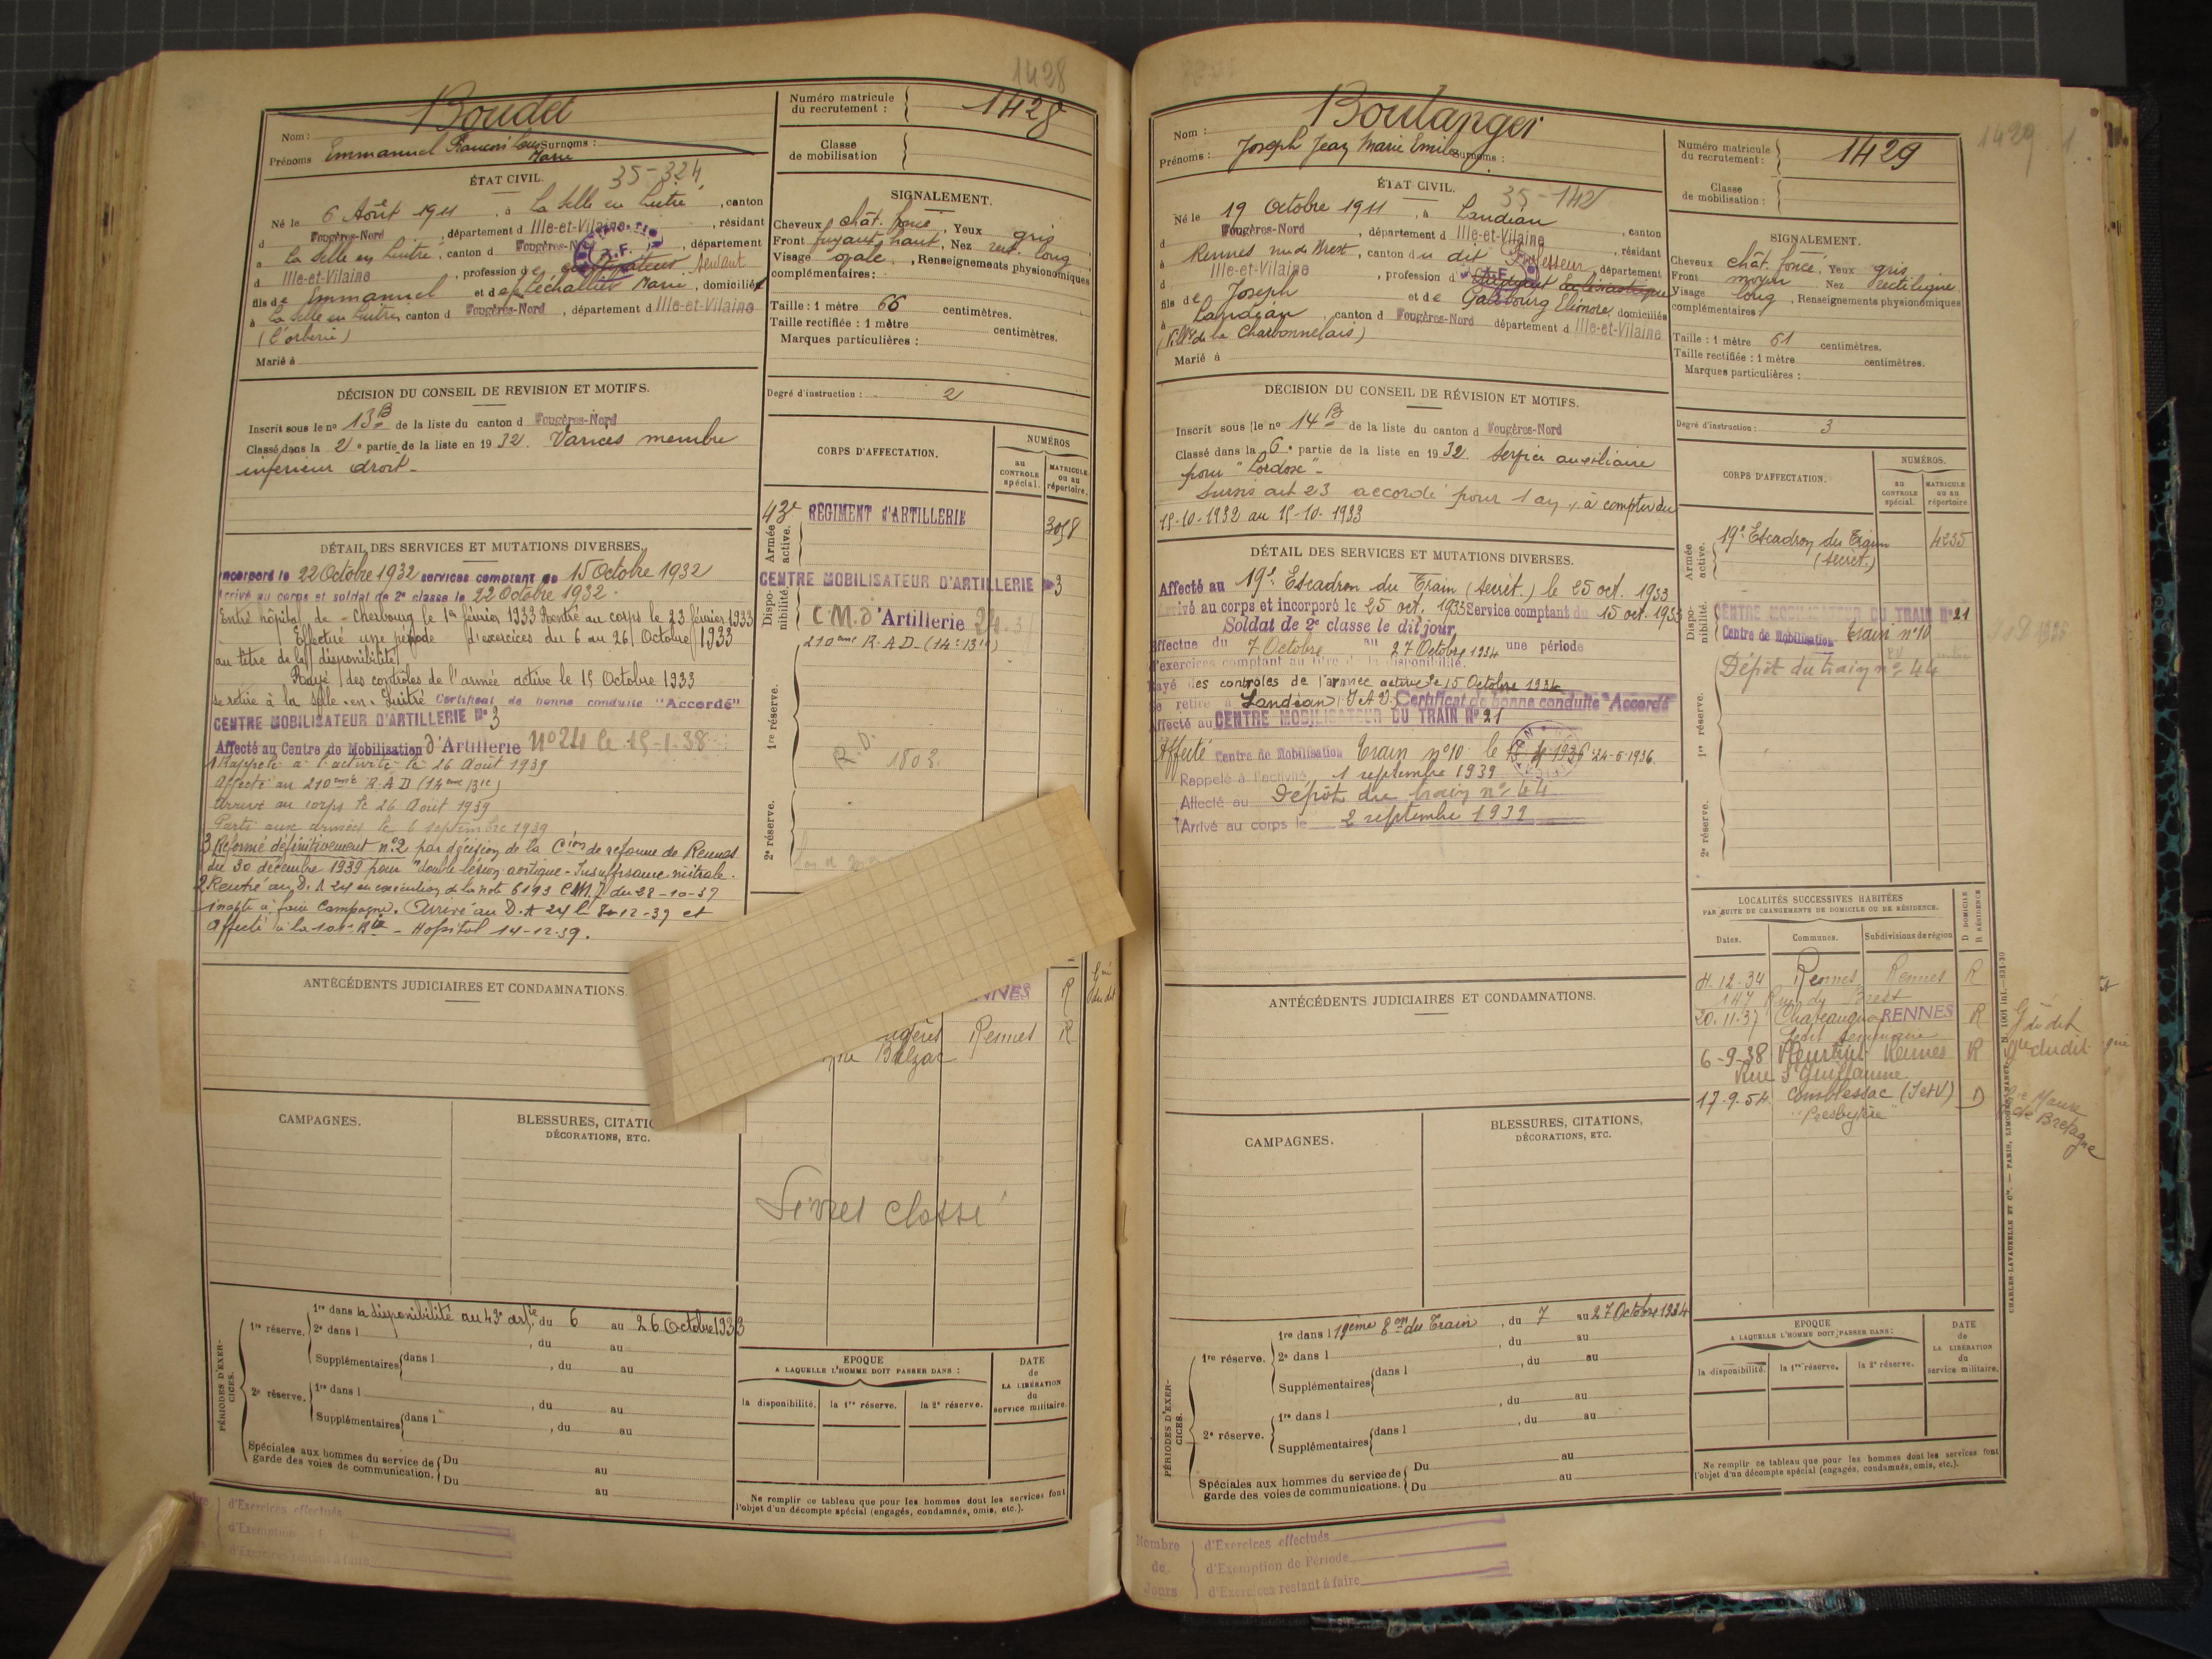 1428
Boudet
Nom :
Prénoms Emmanuel François Louis Surnoms :
Marie
Numéro matricule du recrutement : 1428
Classe de mobilisation
ÉTAT CIVIL. 35-324
Né le 6 Août 1911, à La Selle en Luitré, canton
d Fougères-Nord, département d Ille-et-Vilaine, résidant
à La Selle en Luitré, canton d Fougères-Nord, département
d Ille-et-Vilaine, profession de cultivateur
fils de Emmanuel et de Léchallier Marie, domiciliés
à La Selle en Luitré canton d Fougères-Nord, département d Ille-et-Vilaine
(L'orberie)
Marié à
SIGNALEMENT.
Cheveux chât. foncé, Yeux gris
Front fuyant haut, Nez rect. long
Visage ovale, Renseignements physionomiques
complémentaires :
Taille : 1 mètre 66 centimètres.
Taille rectifiée : 1 mètre centimètres.
Marques particulières :
Degré d'instruction : 2
DÉCISION DU CONSEIL DE REVISION ET MOTIFS.
Inscrit sous le nº 13 B de la liste du canton d Fougères-Nord
Classé dans la 2e partie de la liste en 1932. Varices membre
inférieur droit -
CORPS D'AFFECTATION.
NUMÉROS
au CONTROLE spécial.
MATRICULE ou au répertoire.
Armée active.
43e RÉGIMENT D'ARTILLERIE 3058
Disponibilité.
CENTRE MOBILISATEUR D'ARTILLERIE N°3
C.M. d'Artillerie 24
1re réserve.
210ème R.A.D. (14e Bie)
R.D. 1803
2e réserve.
DÉTAIL DES SERVICES ET MUTATIONS DIVERSES.
Incorporé le 22 Octobre 1932 services comptant de 15 Octobre 1932
Arrivé au corps et soldat de 2e classe le 22 Octobre 1932.
Entré hôpital de Cherbourg le 1er février 1933 Rentré au corps le 23 février 1933
Effectué une période d'exercices du 6 au 26 Octobre 1933
au titre de la disponibilité
Rayé des contrôles de l'armée active le 15 Octobre 1933
se retire à la Selle en Luitré Certificat de bonne conduite "Accordé"
CENTRE MOBILISATEUR D'ARTILLERIE N° 3
Affecté au Centre de Mobilisation d'Artillerie n°24 le 15-1-38
1 Rappelé à l'activité le 26 Août 1939
Affecté au 210ème R.A.D (14ème Bie)
Arrivé au corps le 26 Août 1939
Parti aux armées le 6 septembre 1939
3 Réformé définitivement n°2 par décision de la Cion de réforme de Rennes
du 30 décembre 1939 pour "double lésion aortique - Insuffisance mitrale.
2 Rentré au D. A 24 en exécution de la note 6193 du 28-10-39
inapte à faire Campagne. Arrivé au D. A 24 le 8-12-39 et
affecté à la 101e Bie - Hopital 14-12-39.
ANTÉCÉDENTS JUDICIAIRES ET CONDAMNATIONS.
NNES R
Rennes R
Balzac
CAMPAGNES.
BLESSURES, CITATIO
DÉCORATIONS, ETC.
Livret classé
PÉRIODES D'EXERCICES.
1re réserve. 1re dans la disponibilité au 43e art.ie du 6 au 26 Octobre 1933
2e dans l , du au
Supplémentaires dans l , du au
2e réserve. 1re dans l , du au
Supplémentaires dans l , du au
Spéciales aux hommes du service de garde des voies de communication. Du au
Du au
EPOQUE
A LAQUELLE L'HOMME DOIT PASSER DANS :
la disponibilité. la 1re réserve. la 2e réserve.
DATE de LA LIBÉRATION du service militaire.
Ne remplir ce tableau que pour les hommes dont les services font
l'objet d'un décompte spécial (engagés, condamnés, omis, etc.).
d'Exercices effectués
d'Exemption
d'Exercices restant à faire
1429
Boulanger
Nom :
Prénoms : Joseph Jean Marie Emile Surnoms :
Numéro matricule du recrutement : 1429
Classe de mobilisation :
ÉTAT CIVIL. 35-142
Né le 19 Octobre 1911, à Landéan, canton
d Fougères-Nord, département d Ille-et-Vilaine, résidant
à Rennes rue de Brest, canton du dit, département
d Ille-et-Vilaine, profession d Professeur Etudiant Ecclésiastique
fils de Joseph et de Galbourg Eléonore, domiciliés
à Landéan, canton d Fougères-Nord département d Ille-et-Vilaine
(Vill. de la Charbonnelais)
Marié à
SIGNALEMENT.
Cheveux chât. foncé, Yeux gris
Front moyen Nez rectiligne
Visage long, Renseignements physionomiques
complémentaires :
Taille : 1 mètre 61 centimètres.
Taille rectifiée : 1 mètre centimètres.
Marques particulières :
Degré d'instruction : 3
DÉCISION DU CONSEIL DE RÉVISION ET MOTIFS.
Inscrit sous le nº 14 B de la liste du canton d Fougères-Nord
Classé dans la 6e partie de la liste en 1932. Service auxiliaire
pour "Lordose" -
Sursis art 23 accordé pour 1 an, à compter du
15-10-1932 au 15-10-1933
CORPS D'AFFECTATION.
NUMÉROS.
au CONTROLE spécial.
MATRICULE ou au répertoire
Armée active.
19e Escadron du Train (secrét.) 4235
Disponibilité.
CENTRE MOBILISATEUR DU TRAIN N°21
Centre de Mobilisation Train n°10
1re réserve.
Dépôt du train n° 44
2e réserve.
DÉTAIL DES SERVICES ET MUTATIONS DIVERSES.
Affecté au 19e Escadron du Train (secrét.) le 25 oct. 1933
Arrivé au corps et incorporé le 25 oct. 1933 Service comptant du 15 oct. 1933
Soldat de 2e classe le dit jour
Effectue du 7 Octobre au 27 Octobre 1934 une période
d'exercices comptant au titre de la disponibilité.
Rayé des contrôles de l'armée active le 15 Octobre 1934
Se retire à Landéan (I & V) Certificat de bonne conduite "Accordé"
Affecté au CENTRE MOBILISATEUR DU TRAIN N° 21
Affecté Centre de Mobilisation Train n°10 le 24-6-1936.
Rappelé à l'activité 1 septembre 1939
Affecté au Dépôt du train n° 44
Arrivé au corps le 2 septembre 1939
ANTÉCÉDENTS JUDICIAIRES ET CONDAMNATIONS.
LOCALITÉS SUCCESSIVES HABITÉES
PAR SUITE DE CHANGEMENTS DE DOMICILE OU DE RÉSIDENCE.
Dates. Communes. Subdivisions de région D DOMICILE R RÉSIDENCE
4-12-34 Rennes Rennes R
147 Rue de Brest
20.11.37 RENNES R
6-9-38 Rennes R
Rue St Guillaume
17-9-54 Comblessac (I et V) D
"Presbytère"
Maure de Bretagne
CAMPAGNES.
BLESSURES, CITATIONS,
DÉCORATIONS, ETC.
PÉRIODES D'EXERCICES.
1re réserve. 1re dans l 19ème Eon du Train, du 7 au 27 Octobre 1934
2e dans l , du au
Supplémentaires dans l , du au
2e réserve. 1re dans l , du au
Supplémentaires dans l , du au
Spéciales aux hommes du service de garde des voies de communications. Du au
Du au
EPOQUE
A LAQUELLE L'HOMME DOIT PASSER DANS :
la disponibilité. la 1re réserve. la 2e réserve.
DATE de LA LIBÉRATION du service militaire.
Ne remplir ce tableau que pour les hommes dont les services font
l'objet d'un décompte spécial (engagés, condamnés, omis, etc.).
Nombre de Jours
d'Exercices effectués
d'Exemption de Période
d'Exercices restant à faire